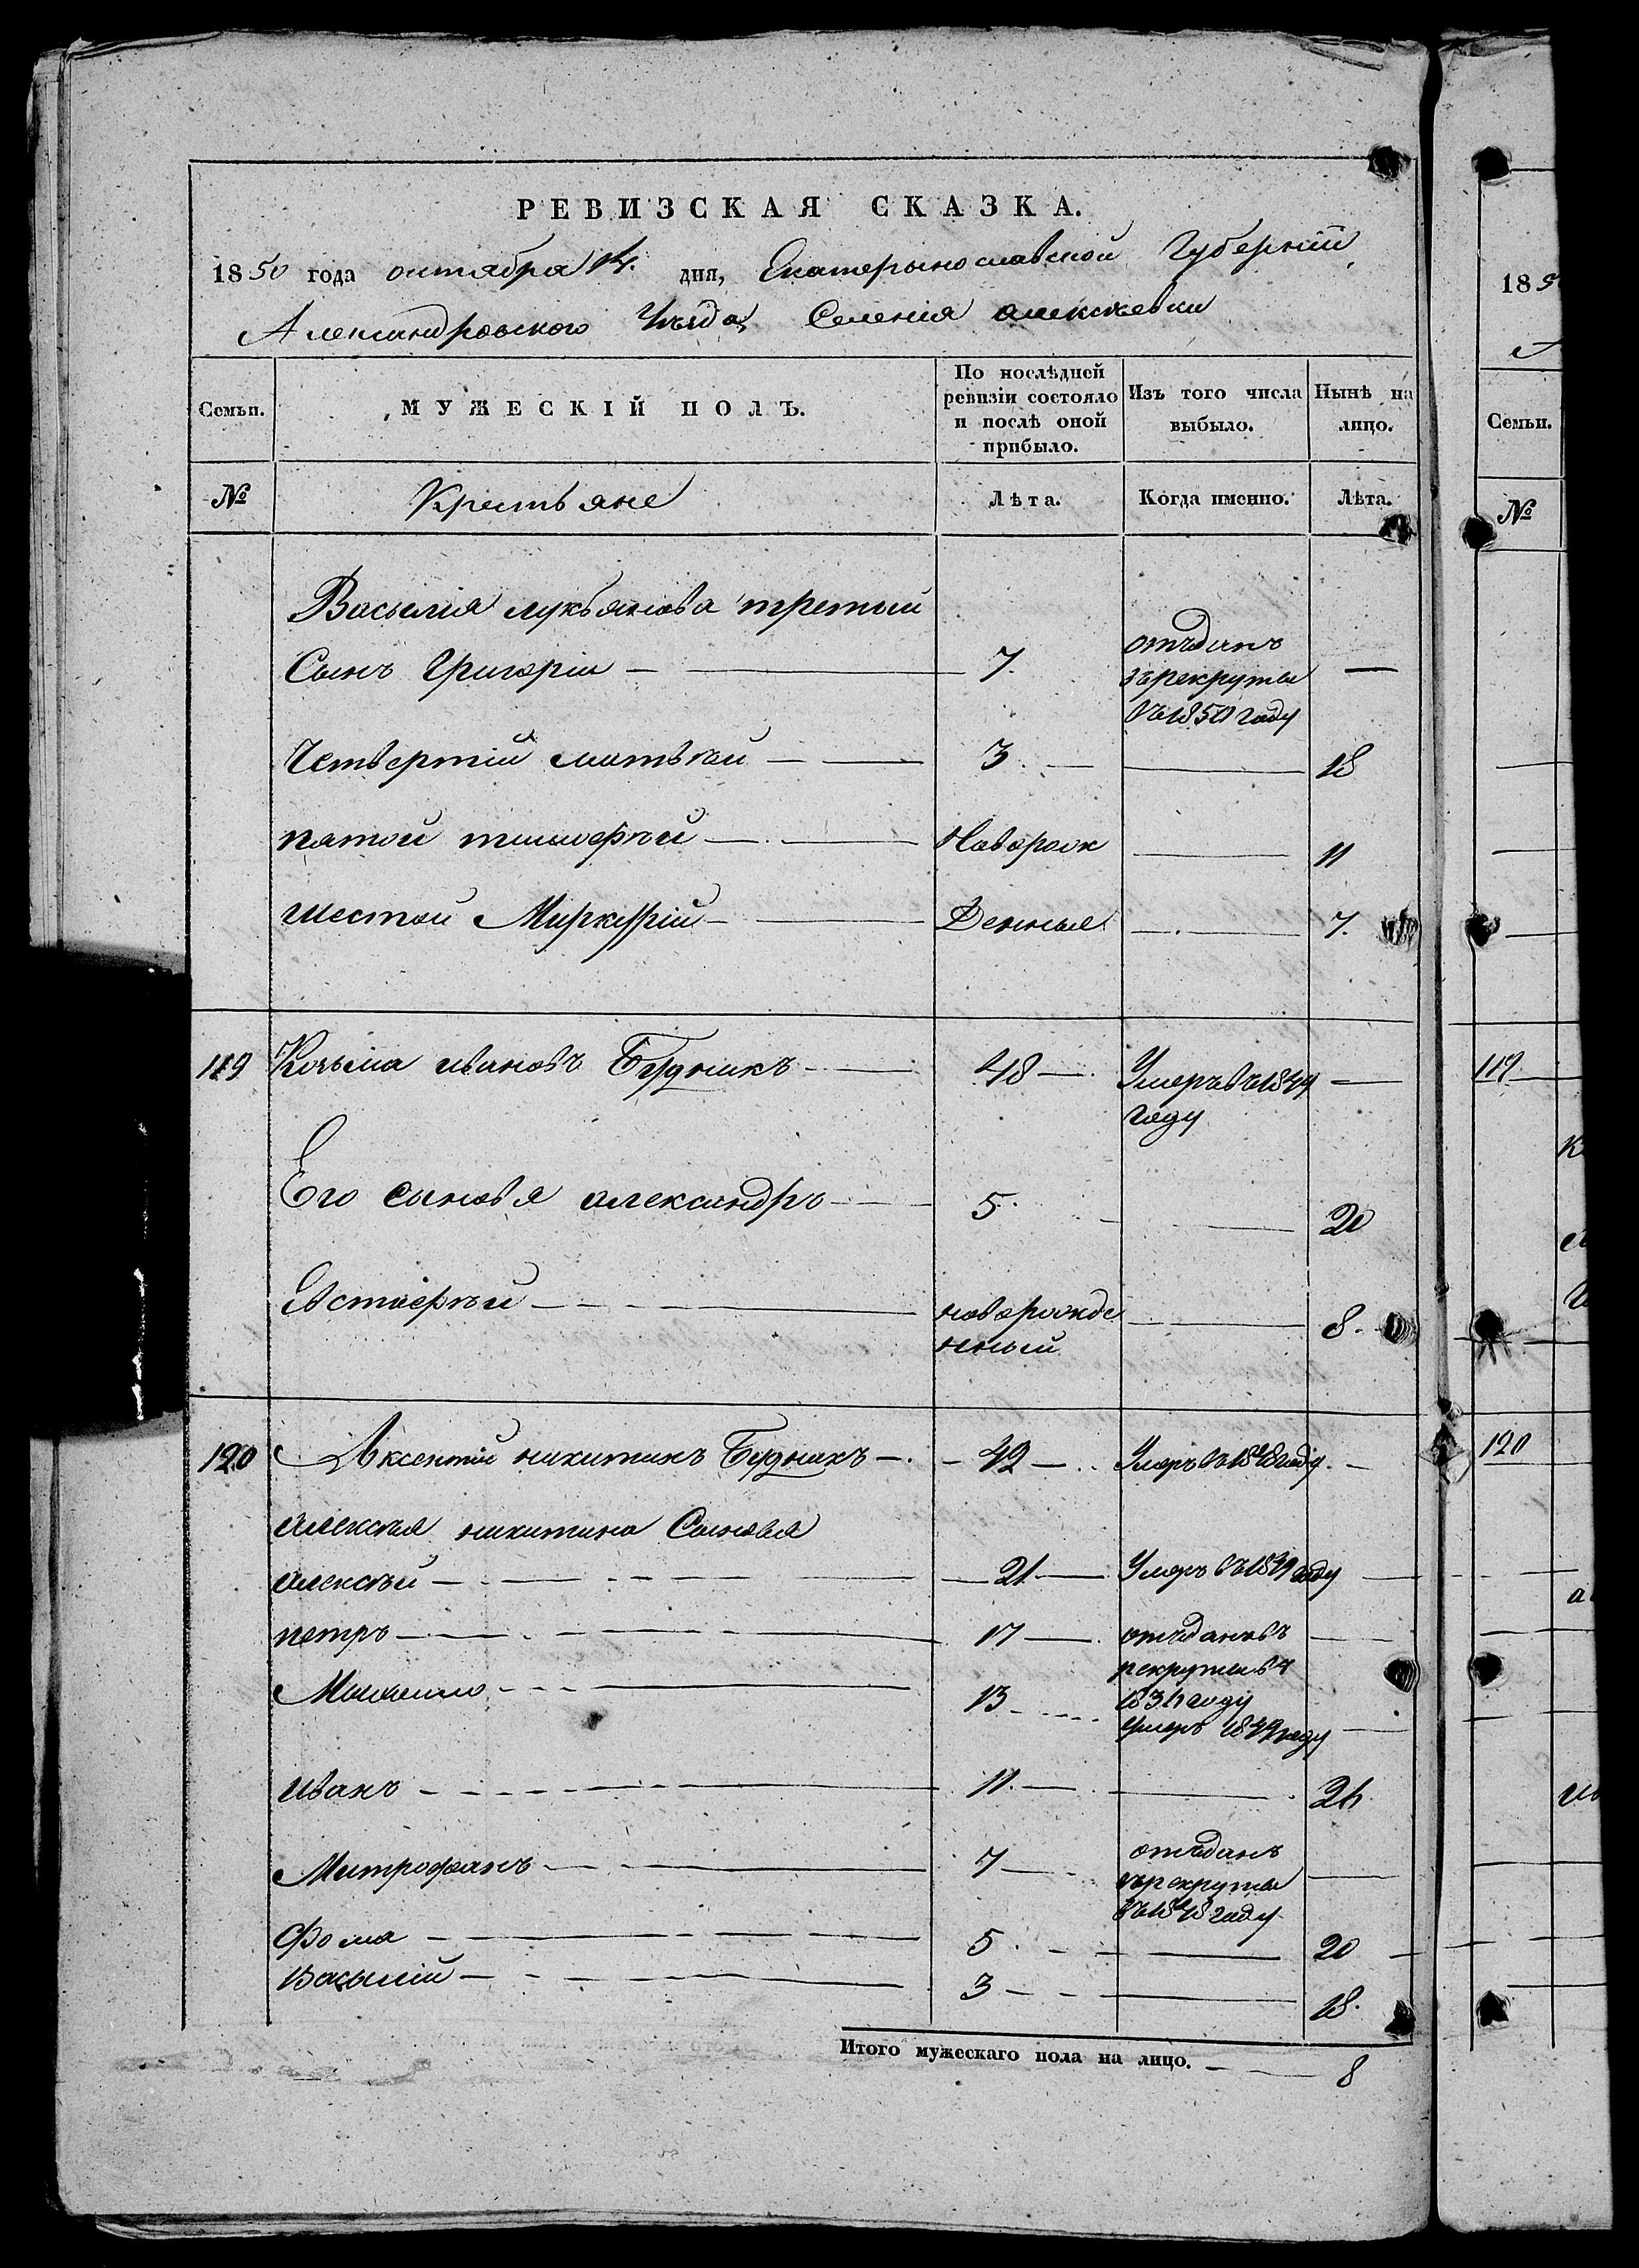 РЕВИЗСКАЯ СКАЗКА.
1850 года октября 14. дня, Екатерынославской Губерніи
Александровского Уѣзда, Селенія алексѣевки
Семьи.
МУЖЕСКІЙ ПОЛЪ.
По послѣдней ревизіи состояло и послѣ оной прибыло.
Изъ того числа выбыло.
Нынѣ на лицо.
№ Крестьяне Лѣта. Когда именно. Лѣта.
Васылія лукьянова третий
Сынъ Григорій 7. отъданъ
въ рекруты
въ 1850 году
Четвертій матвѣй 3 18
пятой тимофѣй Новорож 11
шестой МиркурійДенныя 7.
119 Козьма ивановъ Будникъ 48 Умеръ въ 1849
году
Его сыновья александръ 5. 20
Евстафѣй новорожде
нный 8.
120 Аксентій никитинъ Будникъ 42 Умеръ въ 1848 году
алексѣя никитина Сыновья
алексѣй 21 Умеръ въ году
петръ 17 отъданъ въ
рекруты въ
году
13 умеръ 1849 году
иванъ 11. 26
Митрофанъ 7 отъданъ
въ рекруты
въ 1848 году
Фома 5. 20
Васылій 3 18.
Итого мужескаго пола на лицо. 8
185
Семьи.
№
119
120